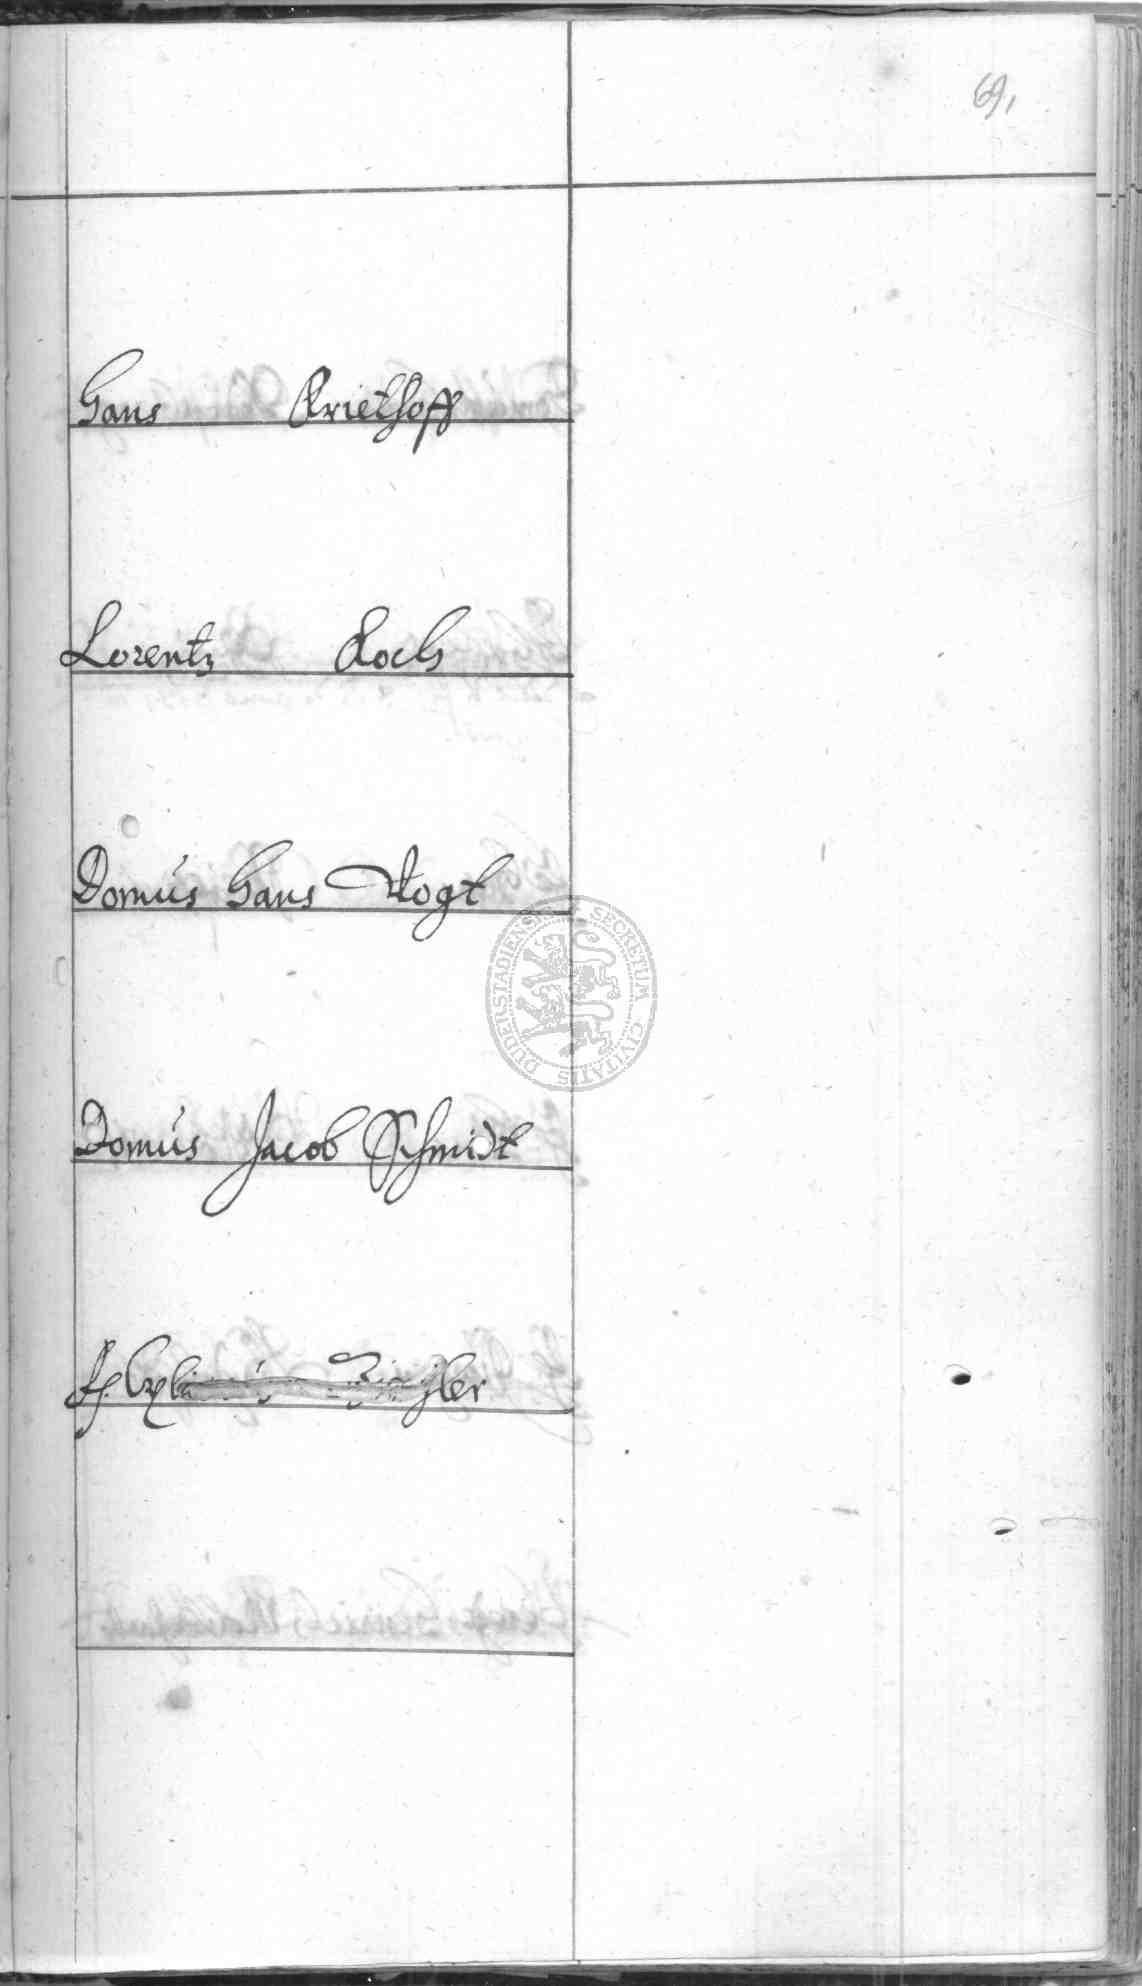 69,
Hans Kriethoff
Lorentz Koch
Domus Hans Vogt
Domus Jacob Schmidt
SECRETUM CIVITATIS DUDERSTADIENSIS